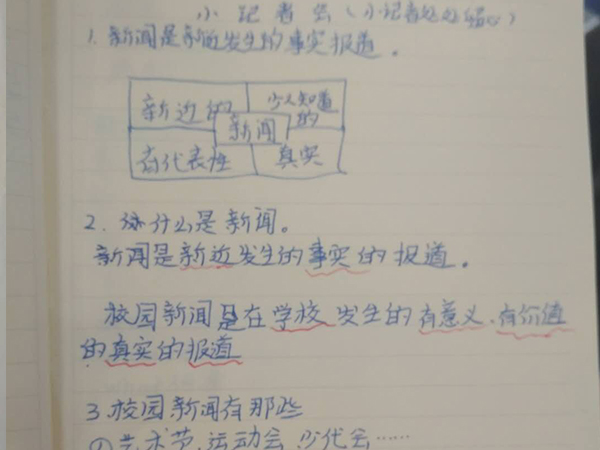 小记者会(小记者处处留心)
1.新闻是新近发生的事实报道。
新近的
少人知道的
新闻
有代表性
真实
2.什么是新闻。
新闻是新近发生的事实的报道。
校园新闻是在学校发生的有意义、有价值
的真实的报道
3.校园新闻有那些
①艺术节、运动会、少代会……